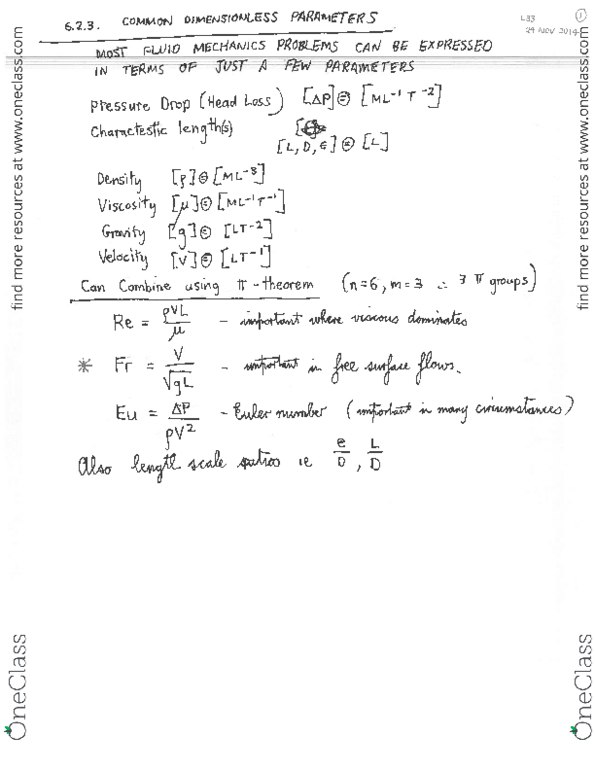 6.2.3. COMMON DIMENSIONLESS PARAMETERS
L33 ①
29 NOV 2014
MOST FLUID MECHANICS PROBLEMS CAN BE EXPRESSED
IN TERMS OF JUST A FEW PARAMETERS
Pressure Drop (Head Loss) [ΔP] ⊜ [ML⁻¹T⁻²]
Charactestic length(s)
[L, D, ε] ⊜ [L]
Density [ρ] ⊜ [ML⁻³]
Viscosity [μ] ⊜ [ML⁻¹T⁻¹]
Gravity [g] ⊜ [LT⁻²]
Velocity [V] ⊜ [LT⁻¹]
Can Combine using π-theorem (n=6, m=3 ∴ 3 π groups)
Re = ρVL/μ - important where viscous dominates
* Fr = V/√gL - important in free surface flows.
Eu = ΔP/ρV² - Euler number (important in many circumstances)
Also length scale ratios ie e/D, L/D
find more resources at www.oneclass.com
find more resources at www.oneclass.com
OneClass
OneClass